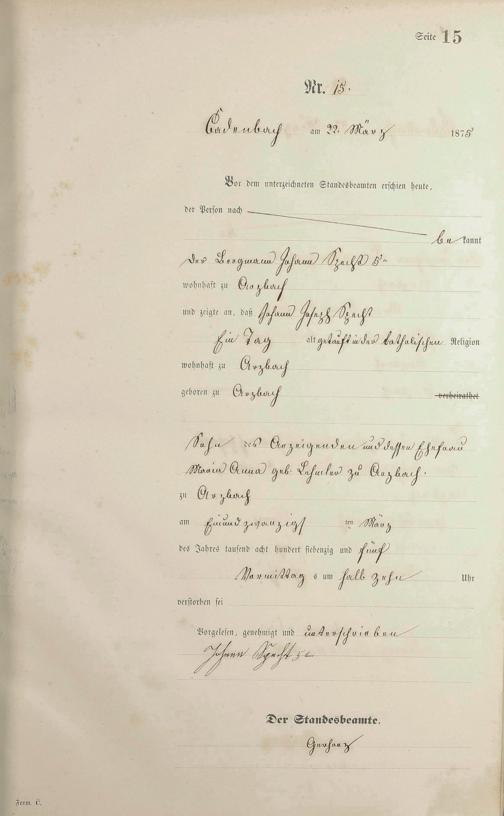 Seite 15
Nr. 15.
Cadenbach am 22. März 1875
Vor dem unterzeichneten Standesbeamten erschien heute,
der Person nach
be kannt
der Bergmann Johann Specht 5te
wohnhaft zu Arzbach
und zeigte an, daß Johann Joseph Specht
Ein Tag alt getauft in der katholischen Religion
wohnhaft zu Arzbach
geboren zu Arzbach verheirathet
Sohn des Anzeigenden und dessen Ehefrau
Maria Anna geb. Lehmler zu Arzbach.
zu Arzbach
am Einundzwanzigs ten März
des Jahres tausend acht hundert siebenzig und fünf
Vormittag s um halb zehn Uhr
verstorben sei
Vorgelesen, genehmigt und unterschrieben
Johann Specht 5te
Der Standesbeamte.
Gerharz
Form. C.